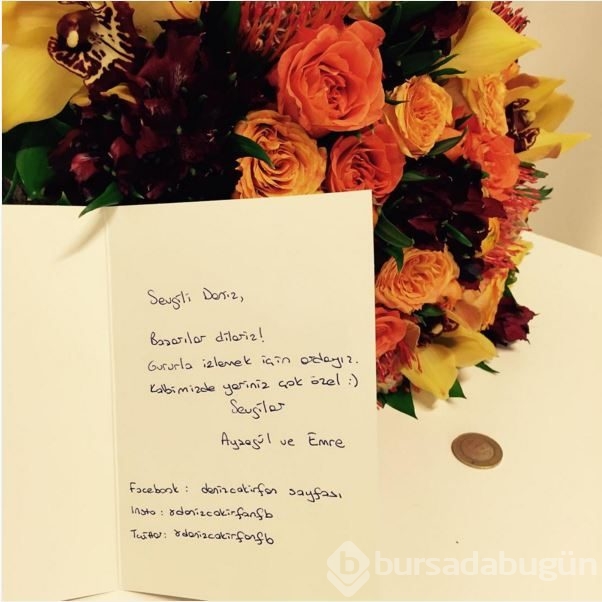 Sevgili Deniz,
Başarılar dileriz!
Gururla izlemek için ordayız.
Kalbimizde yeriniz çok özel :)
Sevgiler
Ayşegül ve Emre
Facebook : denizcakirfan sayfası
Insta : @denizcakirfanfb
Twitter: @denizcakirfanfb
b bursadabugün